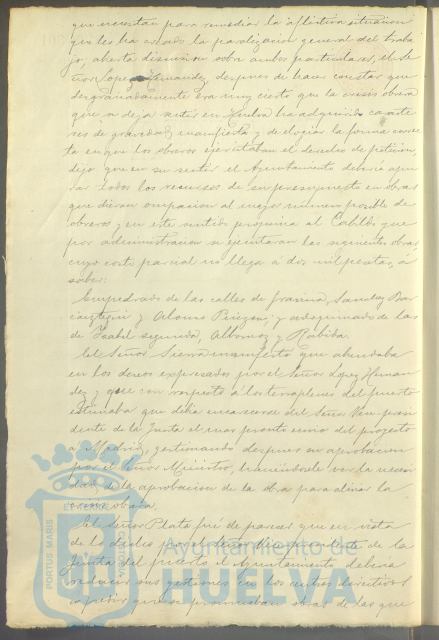 que necesitan para remediar la aflictiva situacion
que les ha creado la paralizacion general del traba-
jo, abierta discusion sobre ambos particulares, el Se-
ñor Lopez Hernandez despues de hacer constar que
desgraciadamente era muy cierto que la crisis obrera
que se deja sentir en Huelva ha adquirido caracte-
res de gravedad manifiesta y de elogiar la forma correc-
ta en que los obreros ejercitaban el derecho de peticion,
dijo que en su sentir el Ayuntamiento deberá apu-
rar todos los recursos de su presupuesto en obras
que dieran ocupacion al mayor número posible de
obreros y en este sentido proponia al Cabildo que
por administracion se ejecutaran las siguientes obras
cuyo coste parcial no llega á dos mil pesetas, á
saber:
Empedrado de las calles de Fragma, Sanchez Bar-
caiztegui y Alonso Pinzon; y adoquinado de las
de Isabel segunda, Albornoz y Rabida.
El Señor Sierra manifestó que abundaba
en los deseos expresados por el Señor Lopez Hernan-
dez y que con respecto á los terraplenes del puerto
estimaba que debia encarecerse del Señor Vice-presi-
dente de la Junta el mas pronto envio del proyecto
a Madrid, gestionando despues su aprobacion
por el Señor Ministro, haciendole ver la necesi-
dad de la aprobacion de la obra para aliviar la
crisis obrera.
El Señor Plata fué de parecer que en vista
de lo dicho por el Señor Vice-presidente de la
Junta del puerto el Ayuntamiento debiera
reducir sus gestiones en los centros directivos
á pedir que se promuevan obras de las que
PORTUS MARIS
Ayuntamiento de
HUELVA